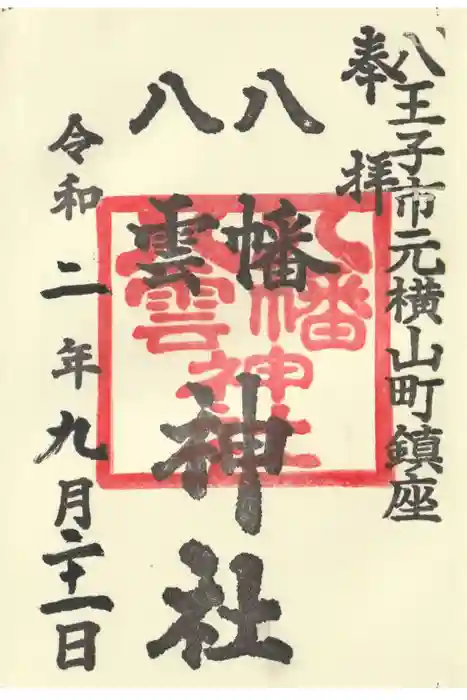 八王子市元横山町鎮座
奉拝
八幡
八雲
神社
令和二年九月二十一日
八幡
八雲
神社